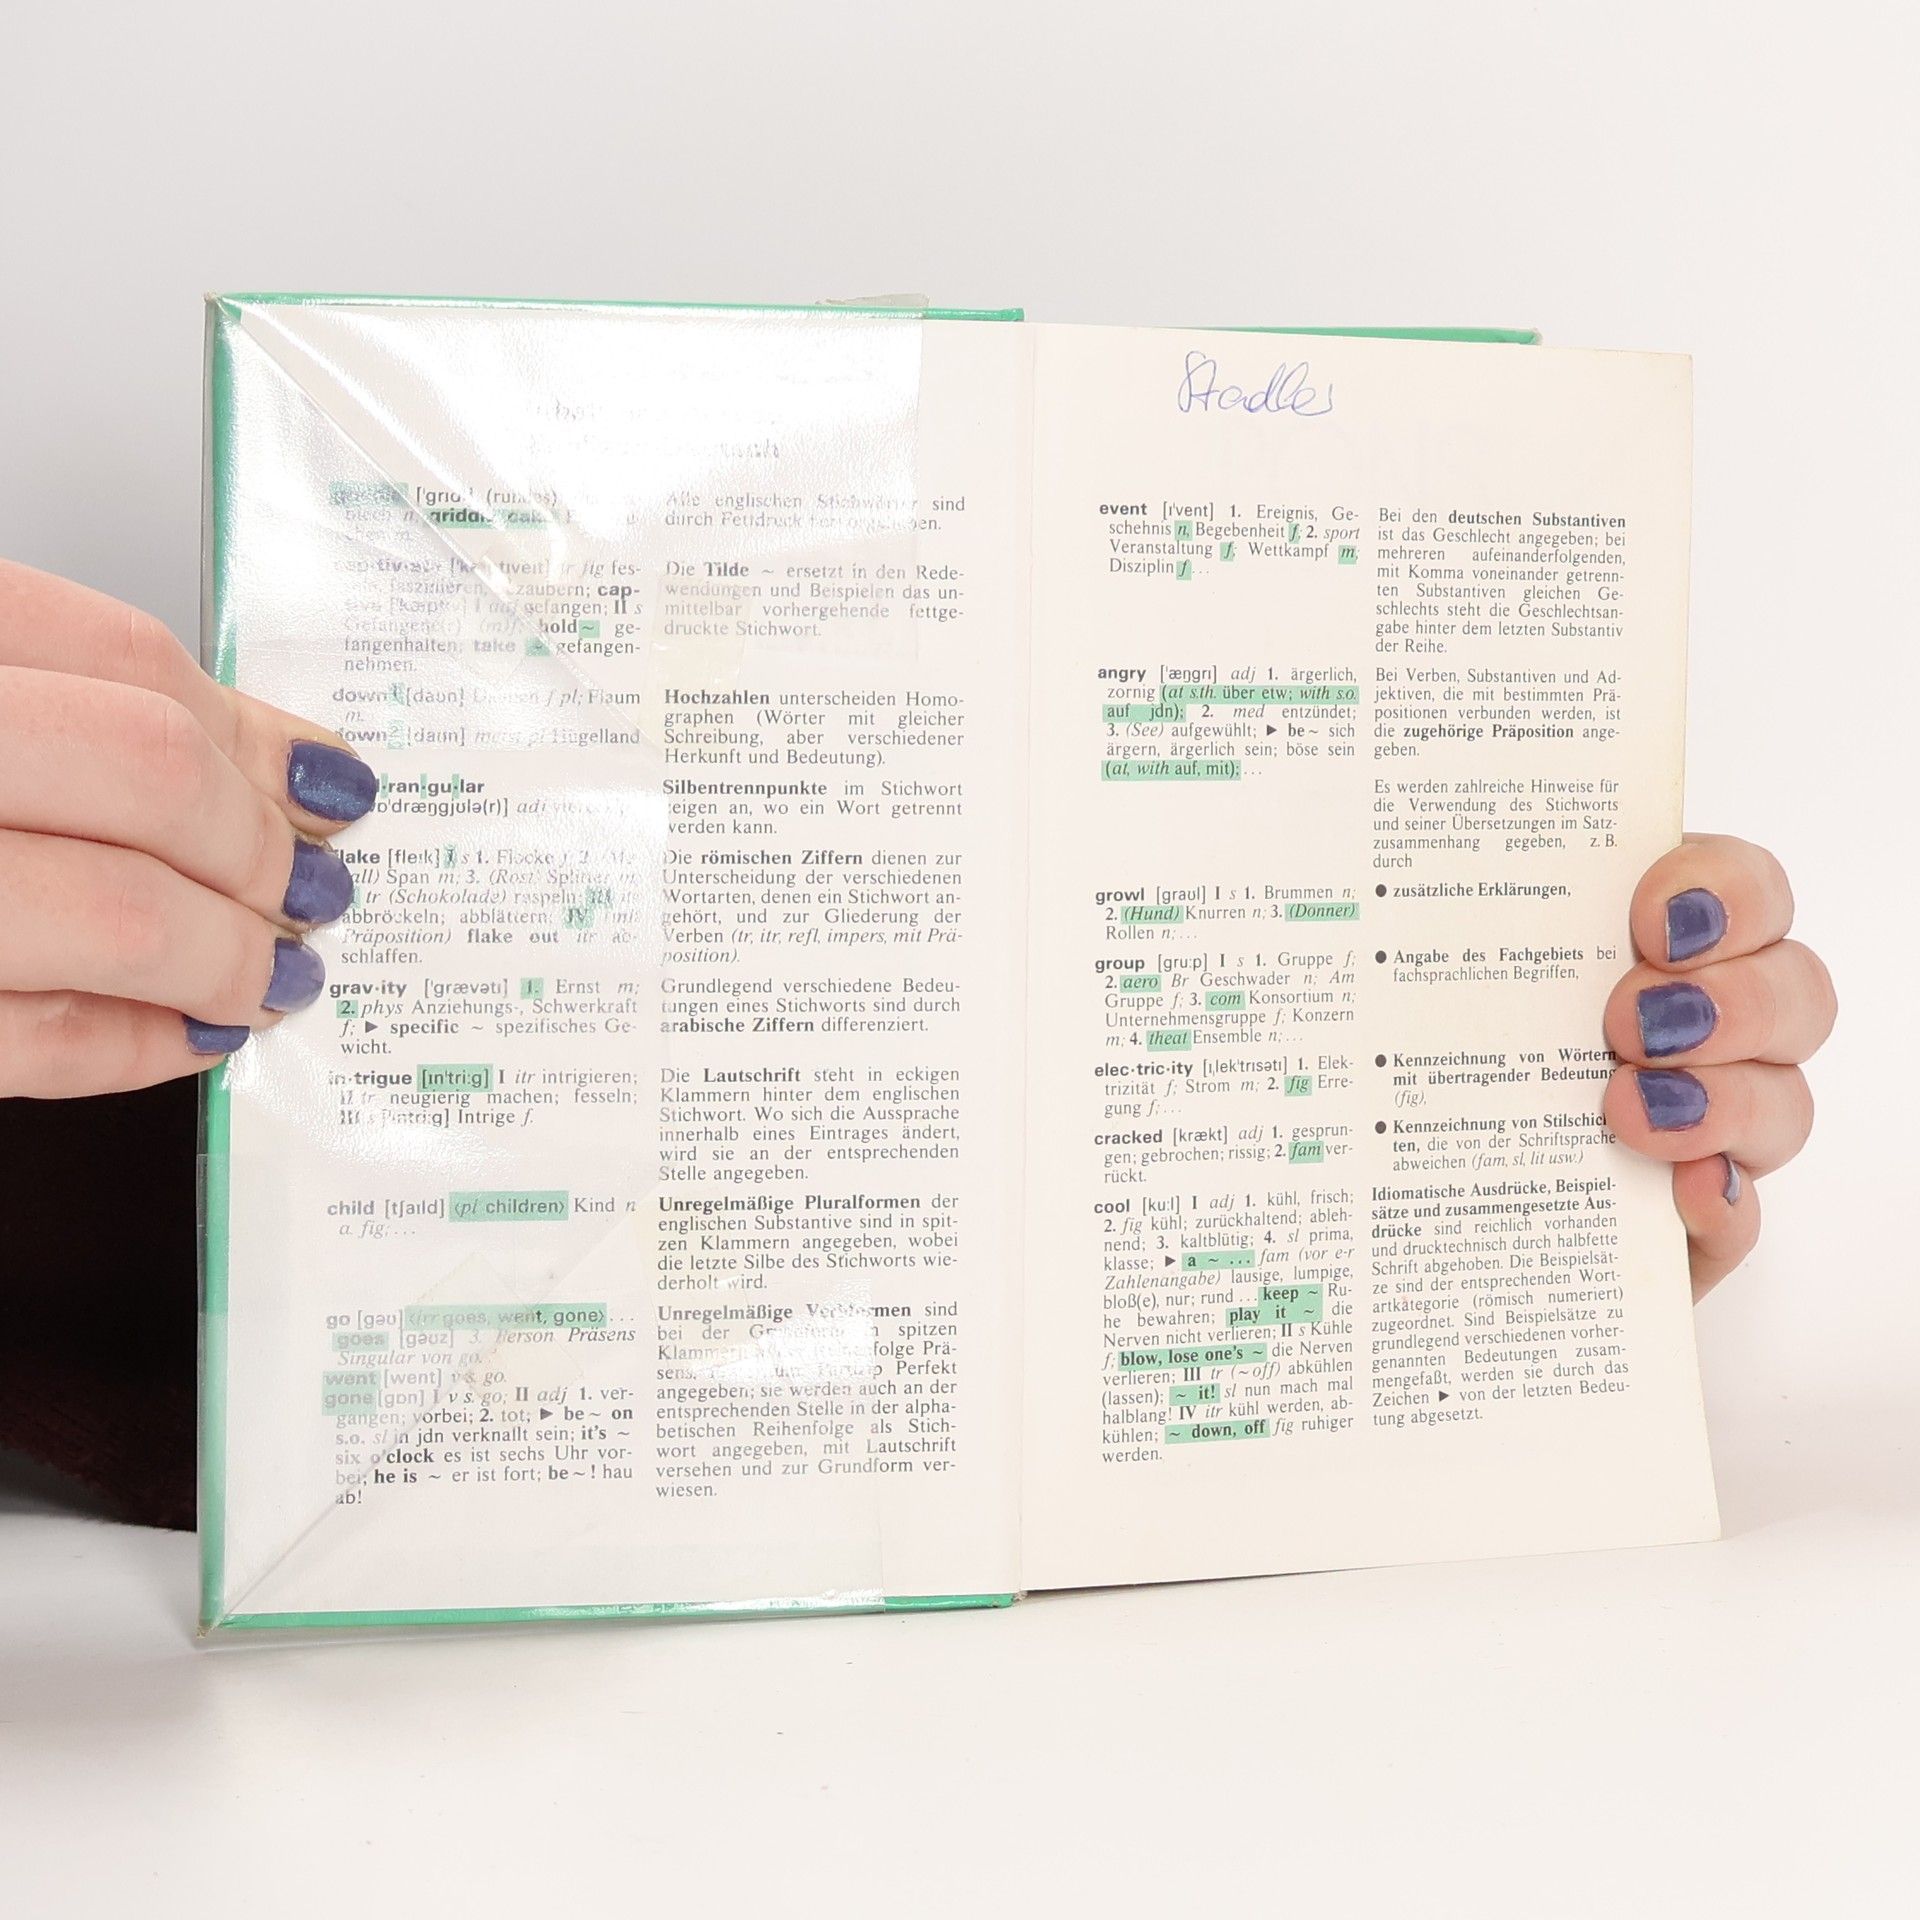 ['grɪdl] (rundes)
blech n; griddle cake
Alle englischen Stichwörter sind
durch Fettdruck hervorgehoben.
cap·tiv·ate ['kæptɪveɪt] tr fig fes-
seln, faszinieren, bezaubern; cap-
tive ['kæptɪv] I adj gefangen; II s
Gefangene(r) (m)f; hold ~ ge-
fangenhalten; take ~ gefangen-
nehmen.
Die Tilde ~ ersetzt in den Rede-
wendungen und Beispielen das un-
mittelbar vorhergehende fettge-
druckte Stichwort.
down¹ [daʊn] Daunen f pl; Flaum
m.
down² [daʊn] meist pl Hügelland
Hochzahlen unterscheiden Homo-
graphen (Wörter mit gleicher
Schreibung, aber verschiedener
Herkunft und Bedeutung).
·ran·gu·lar
'dræŋgjʊlə(r)] adj
Silbentrennpunkte im Stichwort
zeigen an, wo ein Wort getrennt
werden kann.
flake [fleɪk] I s 1. Flocke f; 2.
Span m; 3. (Rost) Splitter m;
tr (Schokolade) raspeln; III itr
abbröckeln; abblättern; IV (mit
Präposition) flake out itr ab-
schlaffen.
Die römischen Ziffern dienen zur
Unterscheidung der verschiedenen
Wortarten, denen ein Stichwort an-
gehört, und zur Gliederung der
Verben (tr, itr, refl, impers, mit Prä-
position).
grav·ity ['grævətɪ] 1. Ernst m;
2. phys Anziehungs-, Schwerkraft
f; ► specific ~ spezifisches Ge-
wicht.
Grundlegend verschiedene Bedeu-
tungen eines Stichworts sind durch
arabische Ziffern differenziert.
in·trigue [ɪn'tri:g] I itr intrigieren;
II tr neugierig machen; fesseln;
III s ['ɪntri:g] Intrige f.
Die Lautschrift steht in eckigen
Klammern hinter dem englischen
Stichwort. Wo sich die Aussprache
innerhalb eines Eintrages ändert,
wird sie an der entsprechenden
Stelle angegeben.
child [tʃaɪld] ⟨pl children⟩ Kind n
a. fig; ...
Unregelmäßige Pluralformen der
englischen Substantive sind in spit-
zen Klammern angegeben, wobei
die letzte Silbe des Stichworts wie-
derholt wird.
go [gəʊ] ⟨irr goes, went, gone⟩ ...
goes [gəʊz] 3. Person Präsens
Singular von go.
went [went] v s. go.
gone [gɒn] I v s. go; II adj 1. ver-
gangen; vorbei; 2. tot; ► be ~ on
s.o. sl in jdn verknallt sein; it's ~
six o'clock es ist sechs Uhr vor-
bei; he is ~ er ist fort; be ~! hau
ab!
Unregelmäßige Verbformen sind
bei der Grundform in spitzen
Klammern in der Reihenfolge Prä-
sens, Perfekt
angegeben; sie werden auch an der
entsprechenden Stelle in der alpha-
betischen Reihenfolge als Stich-
wort angegeben, mit Lautschrift
versehen und zur Grundform ver-
wiesen.
Stadler
event [ɪ'vent] 1. Ereignis, Ge-
schehnis n, Begebenheit f; 2. sport
Veranstaltung f; Wettkampf m;
Disziplin f ...
Bei den deutschen Substantiven
ist das Geschlecht angegeben; bei
mehreren aufeinanderfolgenden,
mit Komma voneinander getrenn-
ten Substantiven gleichen Ge-
schlechts steht die Geschlechtsan-
gabe hinter dem letzten Substantiv
der Reihe.
angry ['æŋgrɪ] adj 1. ärgerlich,
zornig (at s.th. über etw; with s.o.
auf jdn); 2. med entzündet;
3. (See) aufgewühlt; ► be ~ sich
ärgern, ärgerlich sein; böse sein
(at, with auf, mit); ...
Bei Verben, Substantiven und Ad-
jektiven, die mit bestimmten Prä-
positionen verbunden werden, ist
die zugehörige Präposition ange-
geben.
Es werden zahlreiche Hinweise für
die Verwendung des Stichworts
und seiner Übersetzungen im Satz-
zusammenhang gegeben, z. B.
durch
growl [graʊl] I s 1. Brummen n;
2. (Hund) Knurren n; 3. (Donner)
Rollen n; ...
● zusätzliche Erklärungen,
group [gru:p] I s 1. Gruppe f;
2. aero Br Geschwader n; Am
Gruppe f; 3. com Konsortium n;
Unternehmensgruppe f; Konzern
m; 4. theat Ensemble n; ...
● Angabe des Fachgebiets bei
fachsprachlichen Begriffen,
elec·tric·ity [ɪˌlek'trɪsətɪ] 1. Elek-
trizität f; Strom m; 2. fig Erre-
gung f; ...
● Kennzeichnung von Wörtern
mit übertragender Bedeutung
(fig),
cracked [krækt] adj 1. gesprun-
gen; gebrochen; rissig; 2. fam ver-
rückt.
● Kennzeichnung von Stilschich-
ten, die von der Schriftsprache
abweichen (fam, sl, lit usw.)
cool [ku:l] I adj 1. kühl, frisch;
2. fig kühl; zurückhaltend; ableh-
nend; 3. kaltblütig; 4. sl prima,
klasse; ► a ~ ... fam (vor e-r
Zahlenangabe) lausige, lumpige,
bloß(e), nur; rund ... keep ~ Ru-
he bewahren; play it ~ die
Nerven nicht verlieren; II s Kühle
f; blow, lose one's ~ die Nerven
verlieren; III tr (~ off) abkühlen
(lassen); ~ it! sl nun mach mal
halblang! IV itr kühl werden, ab-
kühlen; ~ down, off fig ruhiger
werden.
Idiomatische Ausdrücke, Beispiel-
sätze und zusammengesetzte Aus-
drücke sind reichlich vorhanden
und drucktechnisch durch halbfette
Schrift abgehoben. Die Beispielsät-
ze sind der entsprechenden Wort-
artkategorie (römisch numeriert)
zugeordnet. Sind Beispielsätze zu
grundlegend verschiedenen vorher-
genannten Bedeutungen zusam-
mengefaßt, werden sie durch das
Zeichen ► von der letzten Bedeu-
tung abgesetzt.